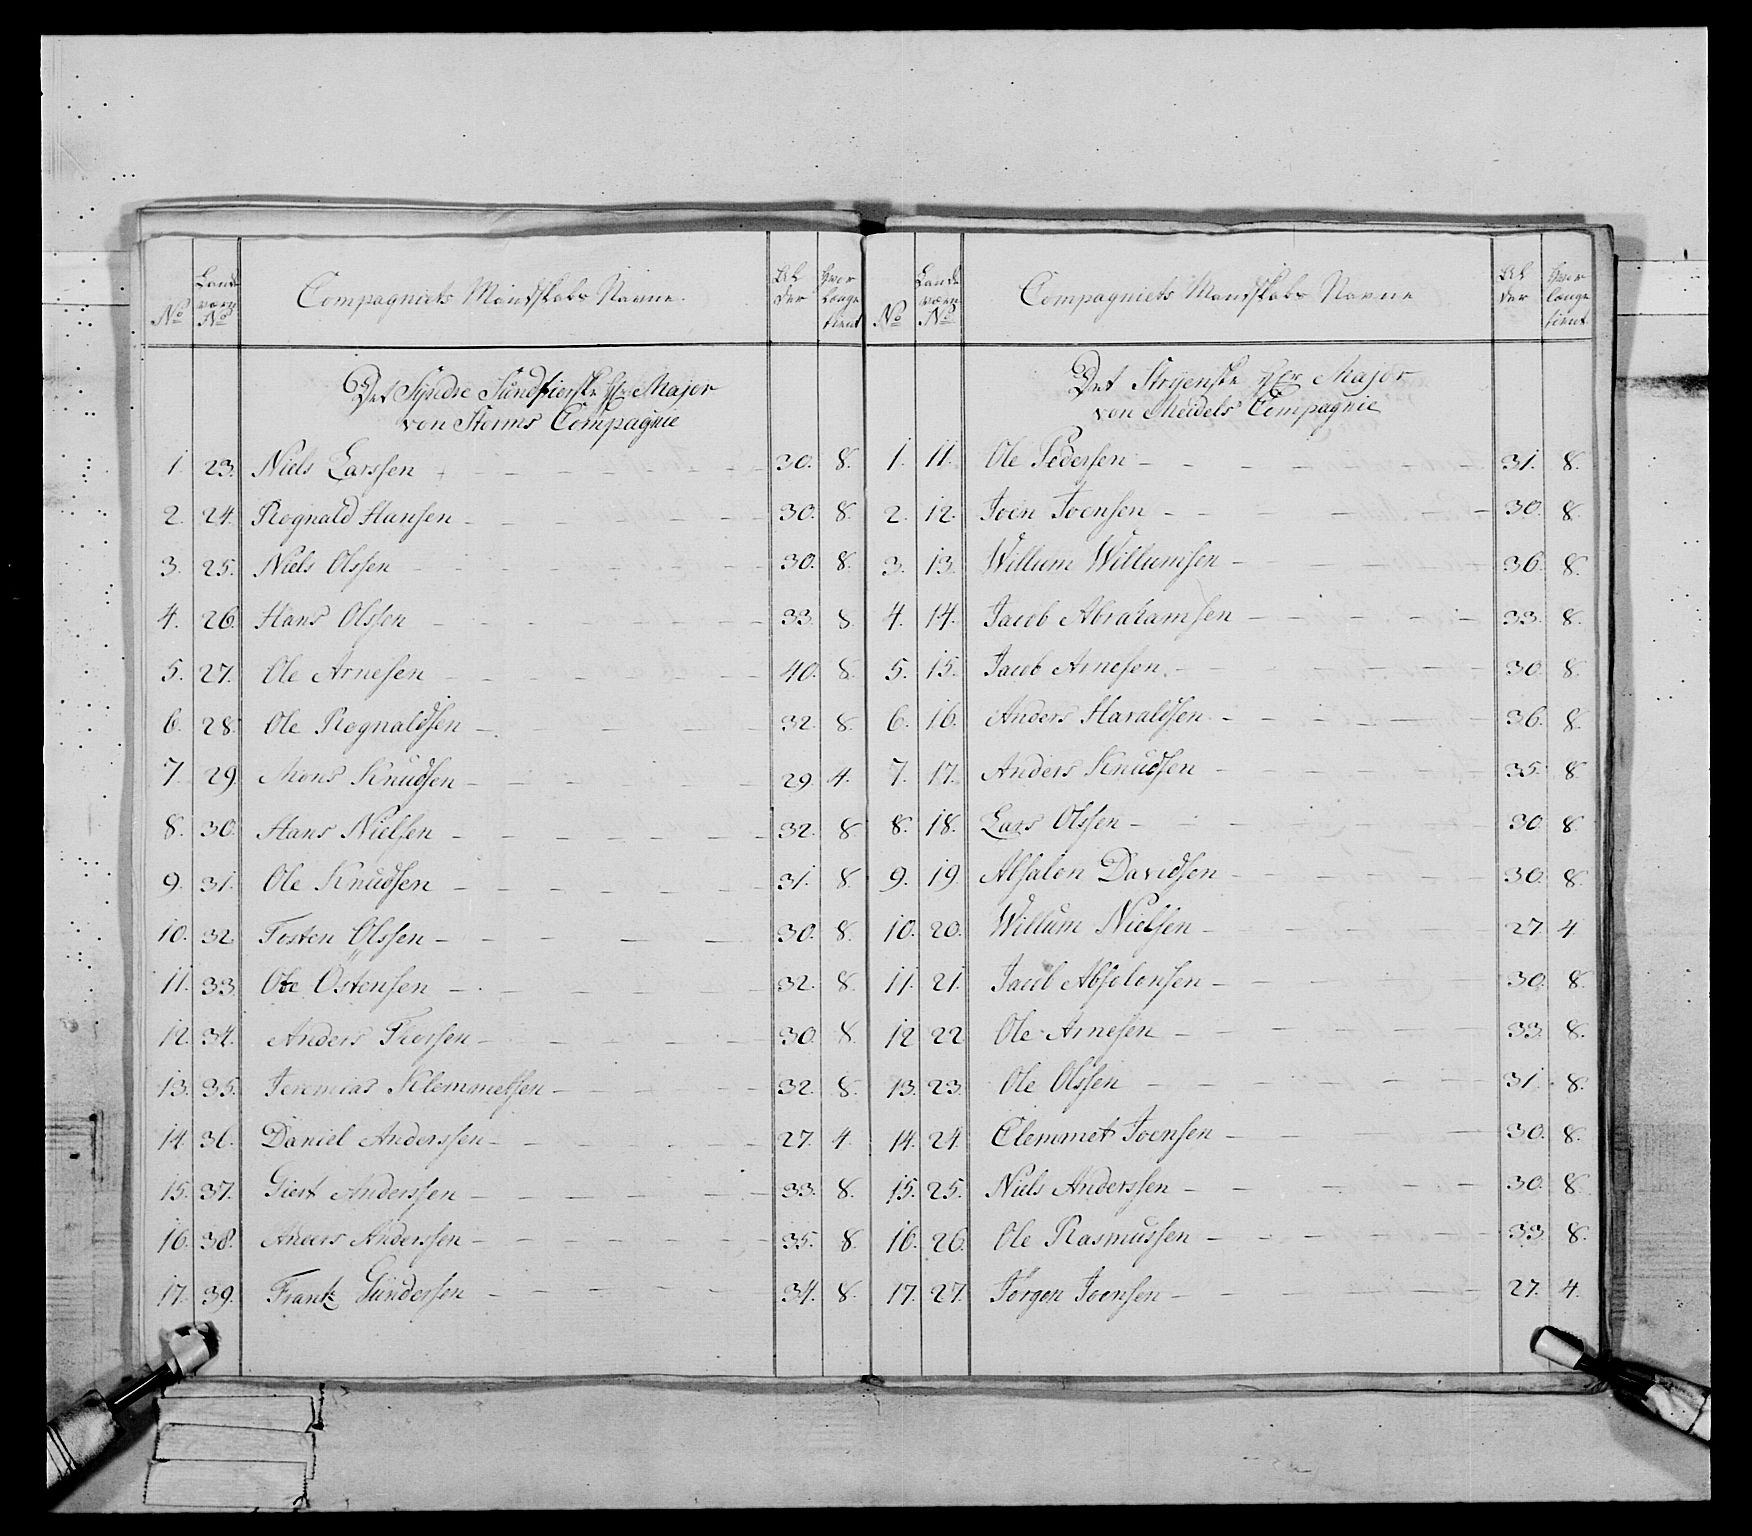 No Land værn No Compagniets Mandskabs Navne. Al der Hvor længe tient
Det Syndre Sundfierske Hr Major
von Storms Compagnie
1. 23. Niels Larssen 30. 8.
2. 24. Rognald Hansen 30. 8.
3. 25. Niels Olssen 30. 8.
4. 26. Hans Olssen 33. 8.
5. 27. Ole Arnesen 40. 8.
6. 28. Ole Rognaldsen 32. 8.
7. 29. Mons Knudsen 29. 4.
8. 30. Hans Nielsen 32. 8.
9. 31. Ole Knudsen 31. 8.
10. 32. Tosten Olssen 30. 8.
11. 33. Ole Østensen 32. 8.
12. 34. Anders Thorsen 30. 8.
13. 35. Jeremias Klemmetsen 32. 8.
14. 36. Daniel Anderssen 27. 4.
15. 37. Giert Anderssen 33. 8.
16. 38. Anders Anderssen 35. 8.
17. 39. Frank Gundersen 34. 8.
No Land værn No Compagniets Mandskabs Navne Al der Hvor længe tient.
Det Stryenske Hr Major
von Meidels Compagnie
1. 11. Ole Pedersen 31. 8.
2. 12. Joen Joensen 30. 8.
3. 13. Willum Willumsen 36. 8.
4. 14. Jacob Abrahamsen 33. 8.
5. 15. Jacob Arnesen 30. 8.
6. 16. Anders Haraldsen 36. 8.
7. 17. Anders Knudsen 35. 8.
8. 18. Lars Olssen 30. 8.
9. 19. Absalon Davidsen 30. 8.
10. 20. Willum Nielsen 27. 4.
11. 21. Jacob Absolonsen 30. 8.
12. 22. Ole Arnesen 33. 8.
13. 23. Ole Olssen 31. 8.
14. 24. Clemmet Joensen 30. 8.
15. 25. Niels Anderssen 30. 8.
16. 26. Ole Rasmussen 33. 8.
17. 27. Jørgen Joensen 27. 4.